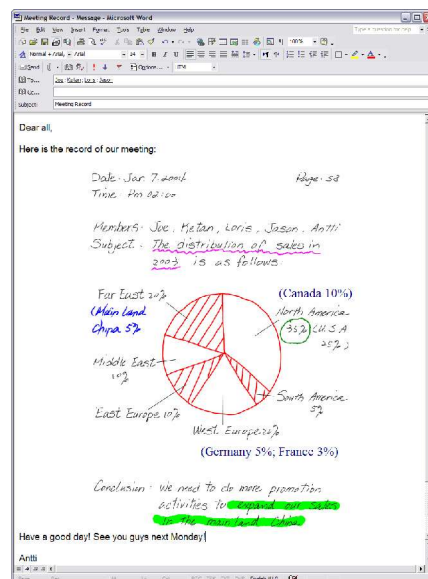 Meeting Record - Message - Microsoft Word
File Edit View Insert Format Tools Table Window Help
Type a question for help
100%
Normal + Arial, Arial 14 B I U
Send Options... HTML
To... Joe; Ketan; Loris; Jason
Cc...
Subject: Meeting Record
Dear all,
Here is the record of our meeting:
Date: Jan 7. 2004 Page: 58
Time: Pm 02:00
Members: Joe, Ketan, Loris, Jason, Antti
Subject: The distribution of sales in
2003 is as follows
Far East 20%
(Canada 10%)
(Main land
China 5%
North America
35% (U.S.A
25%)
Middle East
10%
South America
5%
East Europe 10%
West. Europe 20%
(Germany 5%; France 3%)
Conclusion: We need to do more promotion
activities to expand our sales
in the main land China
Have a good day! See you guys next Monday!
Antti